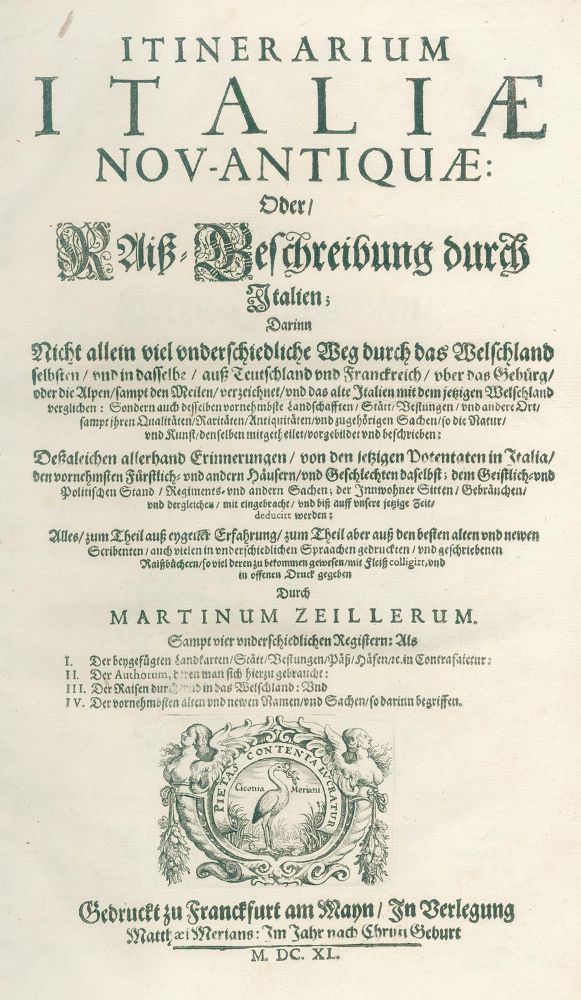 ITINERARIUM
ITALIÆ
NOV-ANTIQUÆ:
Oder/
Raiß-Beschreibung durch
Italien;
Darinn
Nicht allein viel vnderschiedliche Weg durch das Welschland
selbsten / vnd in dasselbe / auß Teutschland vnd Franckreich / vber das Gebürg /
oder die Alpen / sampt den Meilen / verzeichnet / vnd das alte Italien mit dem jetzigen Welschland
verglichen: Sondern auch desselben vornehmbste Landschafften / Stätt / Vestungen / vnd andere Ort /
sampt ihren Qualitäten / Raritäten / Antiquitäten / vnd zugehörigen Sachen / so die Natur /
vnd Kunst / denselben mitgetheilet / vorgebildet vnd beschrieben:
Deßgleichen allerhand Erinnerungen / von den jetzigen Potentaten in Italia /
den vornehmsten Fürstlich- vnd andern Häusern / vnd Geschlechten daselbst; dem Geistlich- vnd
Politischen Stand / Regiments- vnd andern Sachen; der Innwohner Sitten / Gebräuchen /
vnd dergleichen / mit eingebracht / vnd biß auff vnsere jetzige Zeit /
deducirt werden:
Alles / zum Theil auß eygener Erfahrung / zum Theil aber auß den besten alten vnd newen
Scribenten / auch vielen in vnderschiedlichen Spraachen gedruckten / vnd geschriebenen
Raißbüchern / so viel deren zu bekommen gewesen / mit Fleiß colligirt, vnd
in offenen Druck gegeben
Durch
MARTINUM ZEILLERUM.
Sampt vier vnderschiedlichen Registern: Als
I. Der beygefügten Landkarten / Stätt / Vestungen / Päß / Häfen / ec. in Contrafaictur:
II. Der Authorum, deren man sich hierzu gebraucht:
III. Der Raisen durch / vnd in das Welschland: Vnd
IV. Der vornehmbsten alten vnd newen Namen / vnd Sachen / so darinn begriffen.
PIETAS CONTENTA LUCRATUR
Ciconia Meriani
Gedruckt zu Franckfurt am Mayn / In Verlegung
Matthæi Merians: Im Jahr nach Christi Geburt
M. DC. XL.